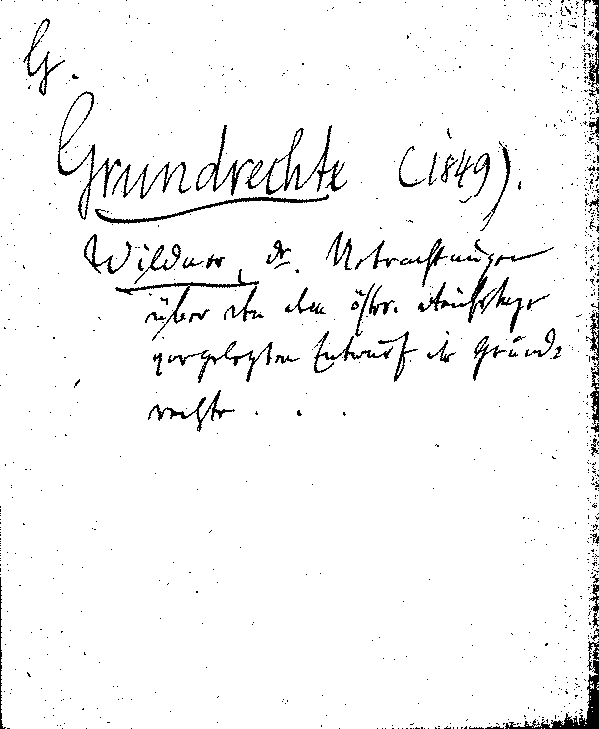 G.
Grundrechte (1849).
Wildner, Dr. Betrachtungen
über den dem östr. Reichstage
vorgelegten Entwurf der Grund=
rechte . . .